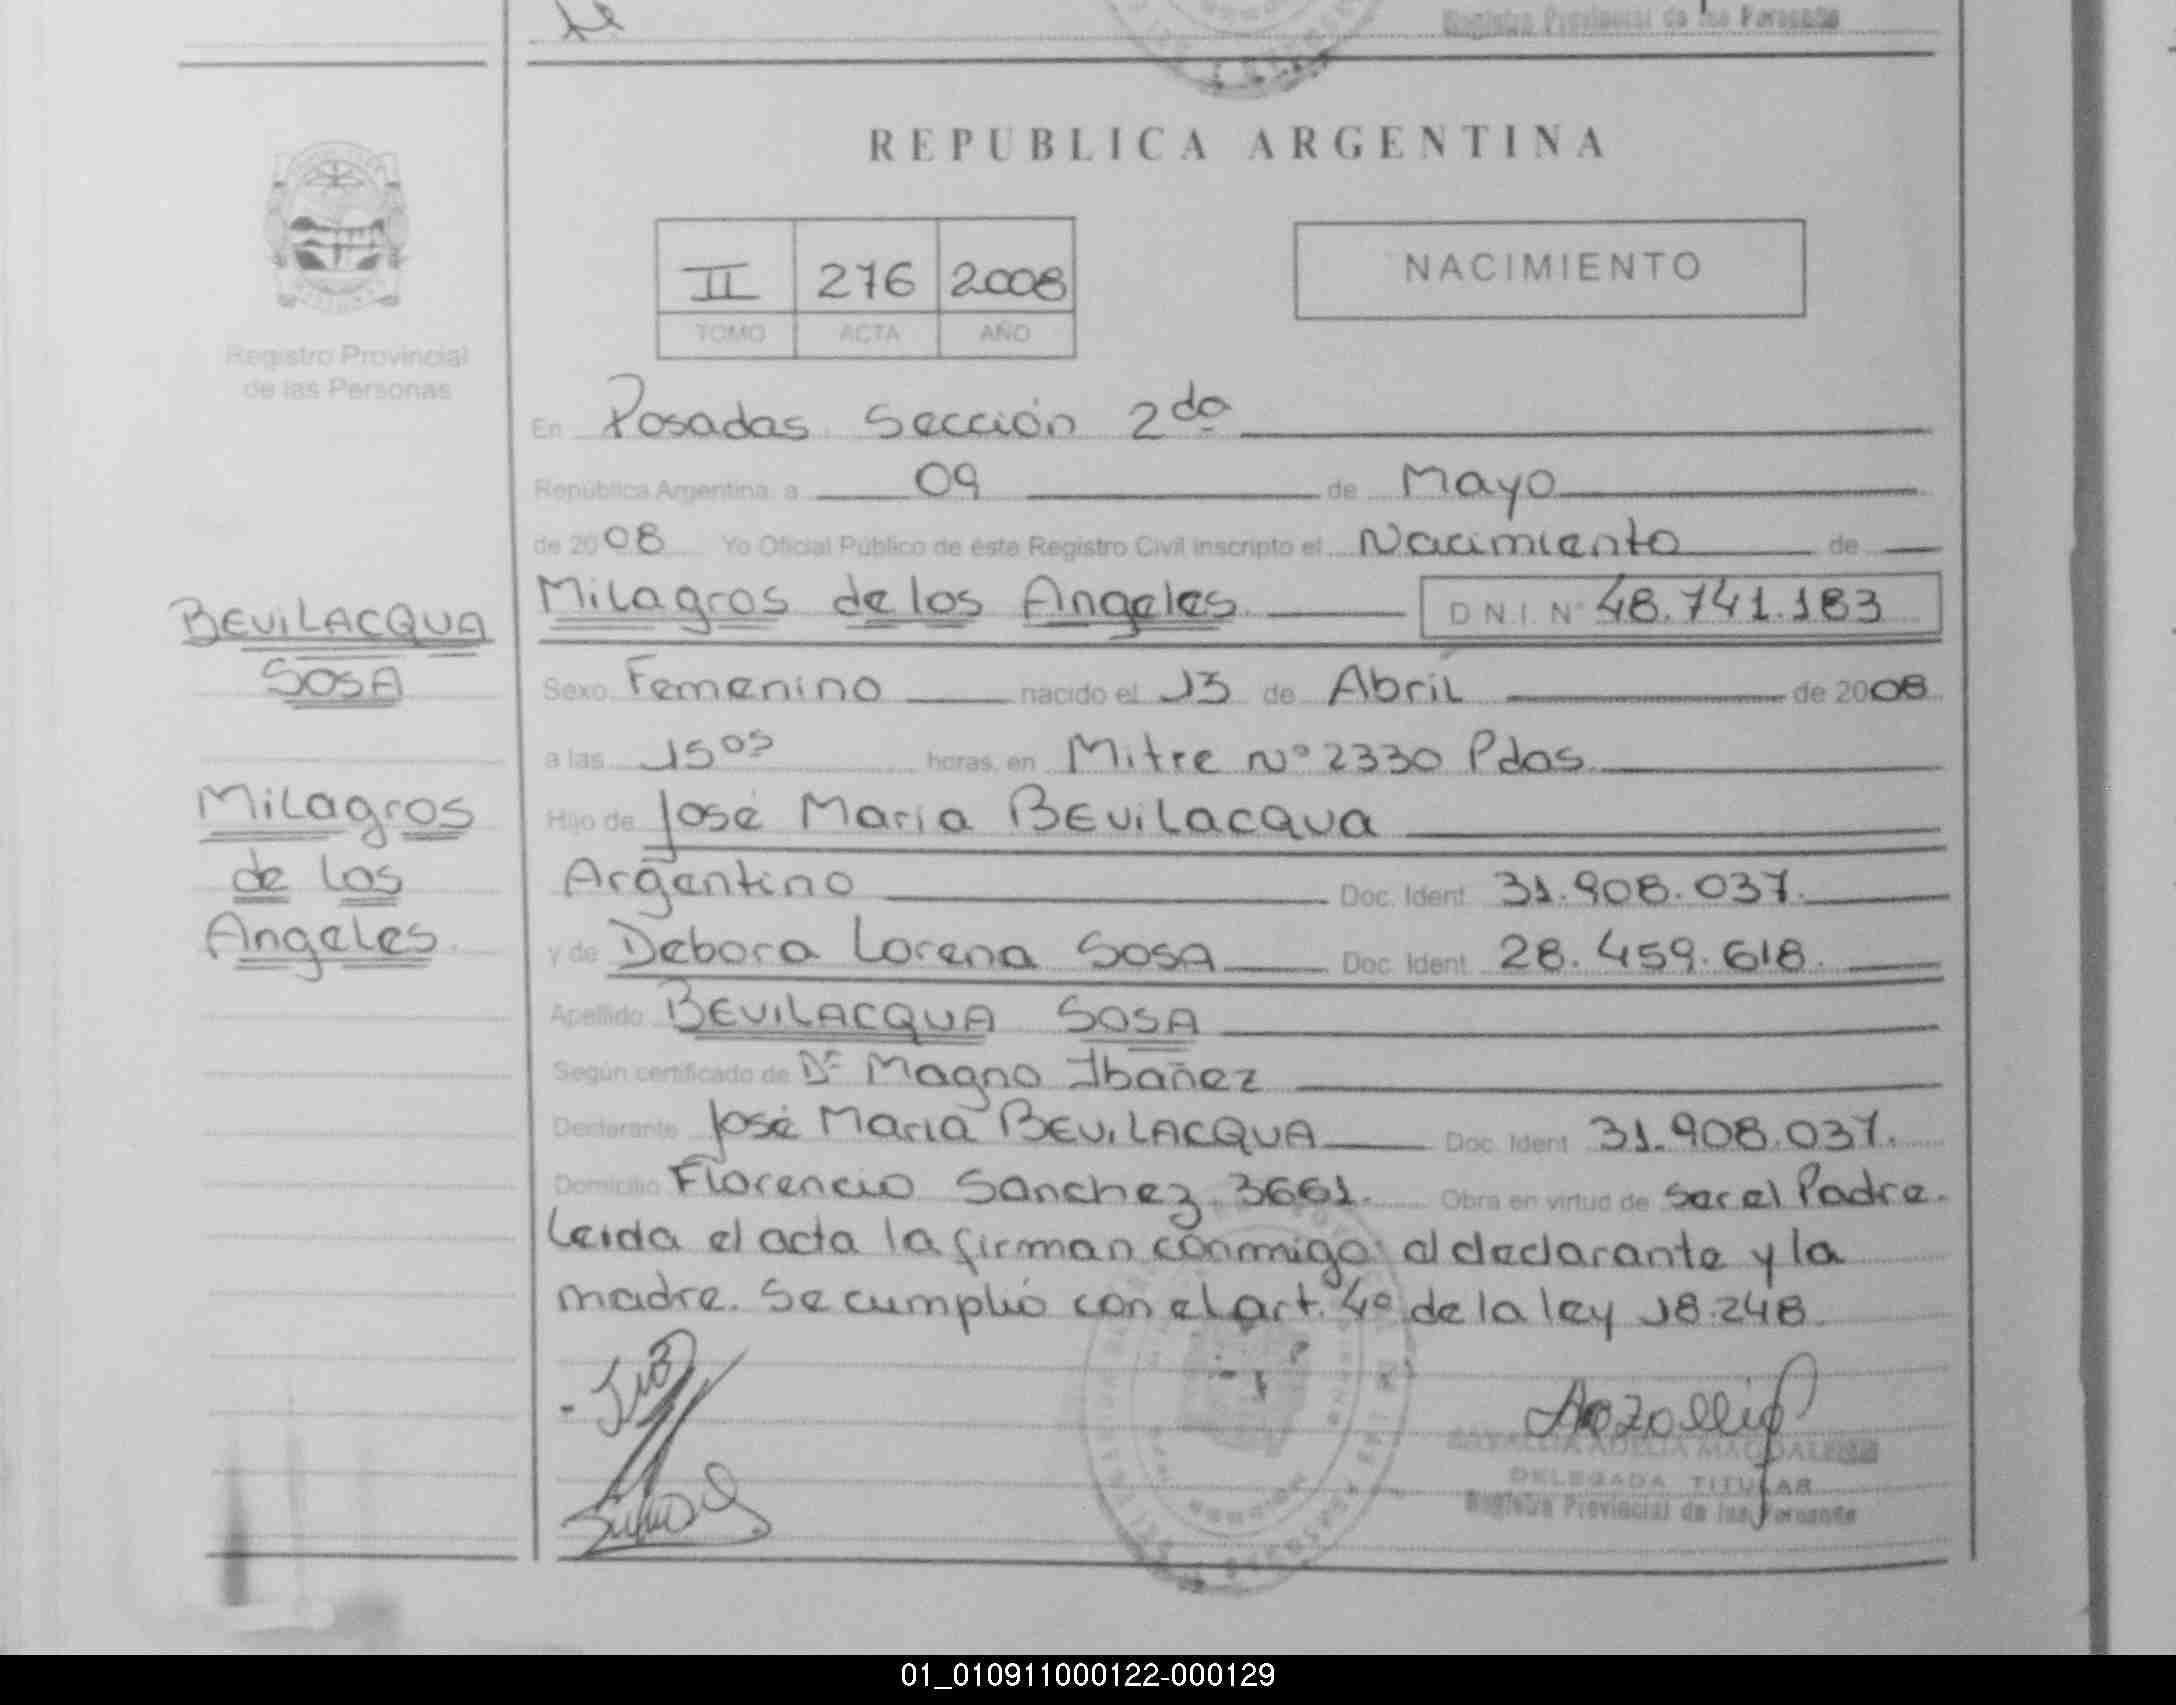 Registro Provincial de las Personas
REPUBLICA ARGENTINA
II 276 2008
TOMO ACTA AÑO
NACIMIENTO
Registro Provincial
de las Personas
En Posadas Sección 2da
República Argentina, a 09 de Mayo
de 2008 Yo Oficial Público de éste Registro Civil inscripto el Nacimiento de
Milagros de los Angeles D.N.I. N° 48.741.183
BEVILACQUA
SOSA
Milagros
de los
Angeles
Sexo Femenino nacido el 13 de Abril de 2008
a las 15 05 horas, en Mitre N° 2330 Pdas.
Hijo de José Maria BEVILACQUA
Argentino Doc. Ident. 31.908.037.
y de Debora Lorena SOSA Doc. Ident. 28.459.618.
Apellido BEVILACQUA SOSA
Según certificado de Dr Magno Ibañez
Declarante José Maria BEVILACQUA Doc. Ident. 31.908.037.
Domicilio Florencio Sanchez 3661. Obra en virtud de ser el Padre.
Leida el acta la firman conmigo: el declarante y la
madre. Se cumplió con el art. 4° de la ley 18.248.
ADELIA MAGDALENA
DELEGADA TITULAR
Registro Provincial de las Personas
01_010911000122-000129